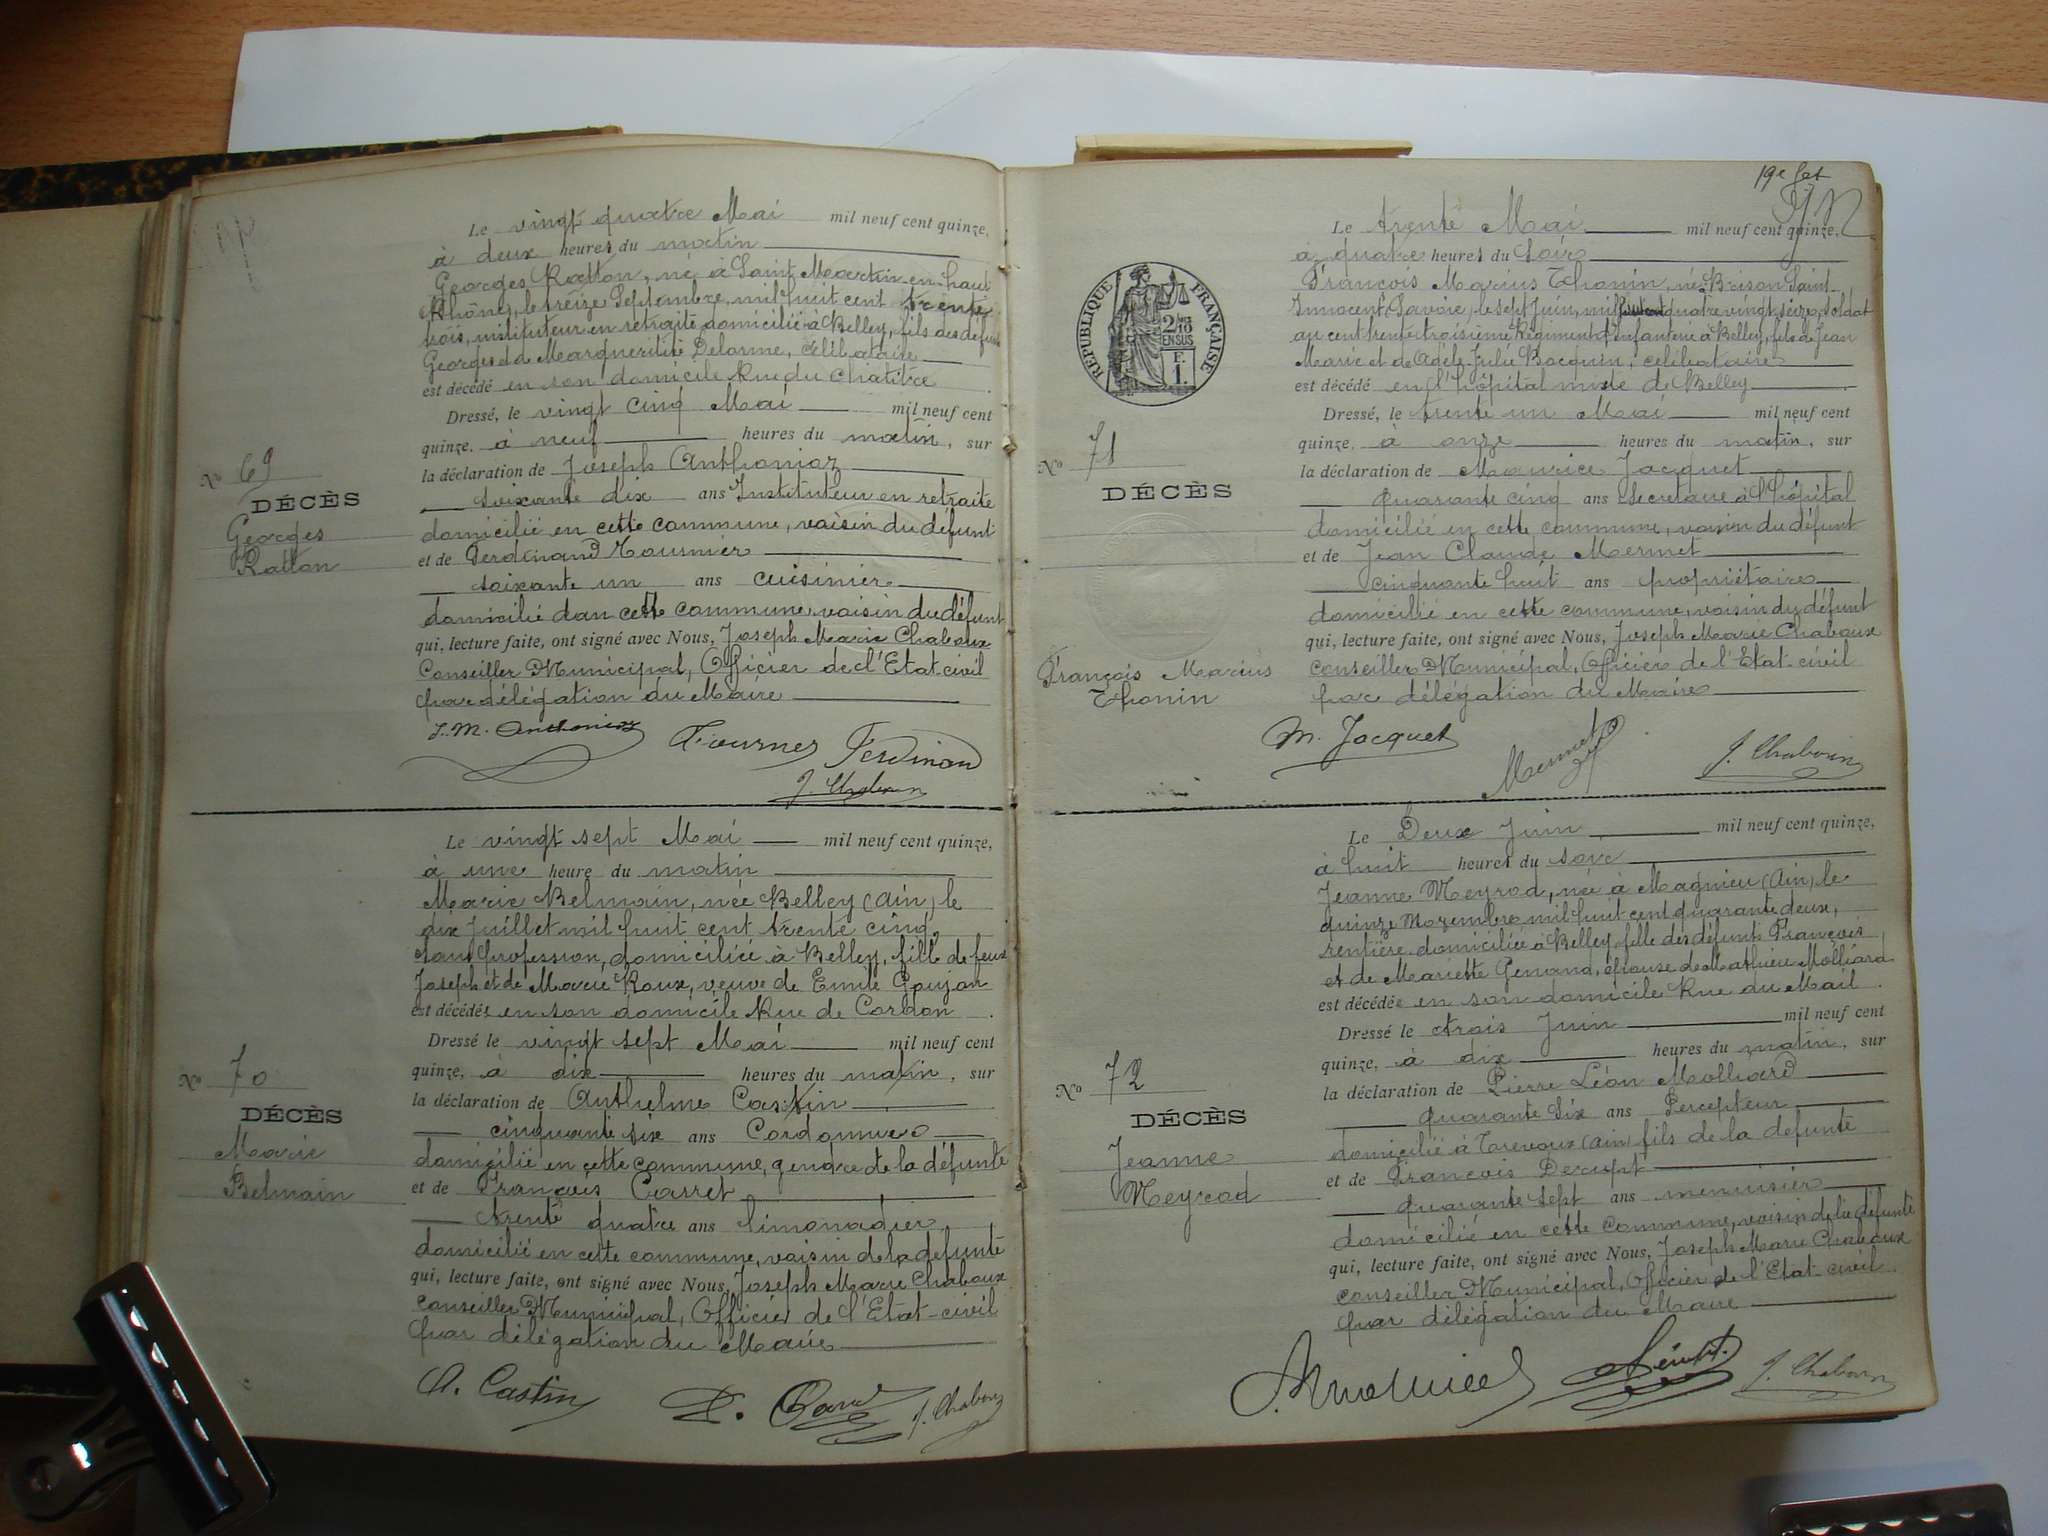 Le vingt quatre Mai mil neuf cent quinze,
à deux heures du matin
Georges Ratton, né à Saint Martin en haut
Rhône, le treize Septembre, mil huit cent trente
trois, instituteur en retraite domicilié à Belley, fils des défunts
Georges et de Margueritte Delorme, célibataire
est décédé en son domicile Rue du Chapitre
Dressé, le vingt cinq Mai mil neuf cent
quinze, à neuf heures du matin, sur
la déclaration de Joseph Anthonioz
soixante dix ans Instituteur en retraite
domicilié en cette commune, voisin du défunt
et de Ferdinand Fournier
soixante un ans cuisinier
domicilié dan cette commune, voisin du défunt
qui, lecture faite, ont signé avec Nous, Joseph Marie Chaboux
Conseiller Municipal, Officier de l'Etat-civil
par délégation du Maire
J. M. Anthonioz Fournier Ferdinand
J. Chaboux
No 69
DÉCÈS
Georges
Ratton
Le vingt sept Mai mil neuf cent quinze,
à une heure du matin
Marie Belmain, née Belley (Ain), le
dix Juillet mil huit cent trente cinq,
sans profession, domiciliée à Belley, fille de feux
Joseph et de Marie Roux, veuve de Emile Goujon
est décédée en son domicile Rue de Cordon
Dressé le vingt sept Mai mil neuf cent
quinze, à dix heures du matin, sur
la déclaration de Anthelme Castin
cinquante six ans Cordonnier
domicilié en cette commune, gendre de la défunte
et de François Carret
trente quatre ans limonadier
domicilié en cette commune, voisin de la défunte
qui, lecture faite, ont signé avec Nous, Joseph Marie Chaboux
conseiller Municipal, Officier de l'Etat-civil
par délégation du Maire
A. Castin J. Chaboux
No 70
DÉCÈS
Marie
Belmain
19e
Le trente Mai mil neuf cent quinze,
à quatre heures du Soir
François Marius Thonin, né Brison Saint
Innocent, Savoie, le sept Juin, mil huit cent quatre vingt seize, soldat
au cent trente troisième Régiment d'Infanterie à Belley, fils de Jean
Marie et de Adèle Julie Bocquin, célibataire
est décédé en l'hôpital mixte de Belley
Dressé, le trente un Mai mil neuf cent
quinze, à onze heures du matin, sur
la déclaration de Maurice Jacquet
quarante cinq ans Secretaire à l'hôpital
domicilié en cette commune, voisin du défunt
et de Jean Claude Mermet
cinquante huit ans propriétaire
domicilié en cette commune, voisin du défunt
qui, lecture faite, ont signé avec Nous, Joseph Marie Chaboux
conseiller Municipal, Officier de l'Etat-civil
par délégation du Maire
M. Jacquet Mermet J. Chaboux
RÉPUBLIQUE FRANÇAISE
2/10
EN SUS
F.
1.
No 71
DÉCÈS
François Marius
Thonin
Le Deux Juin mil neuf cent quinze,
à huit heures du soir
Jeanne Meyrod, née à Magnieu (Ain) le
quinze Novembre mil huit cent quarante deux,
rentière domiciliée à Belley, fille des défunts François
et de Mariette Genand, épouse de Mathieu Molliard
est décédée en son domicile Rue du Mail
Dressé le trois Juin mil neuf cent
quinze, à dix heures du matin, sur
la déclaration de Pierre Léon Molliard
quarante six ans Percepteur
domicilié à Trevoux (Ain) fils de la defunte
et de François
quarante sept ans menuisier
domicilié en cette commune, voisin de la défunte
qui, lecture faite, ont signé avec Nous, Joseph Marie Chaboux
conseiller Municipal, Officier de l'Etat-civil
par délégation du Maire
J. Chaboux
No 72
DÉCÈS
Jeanne
Meyrod